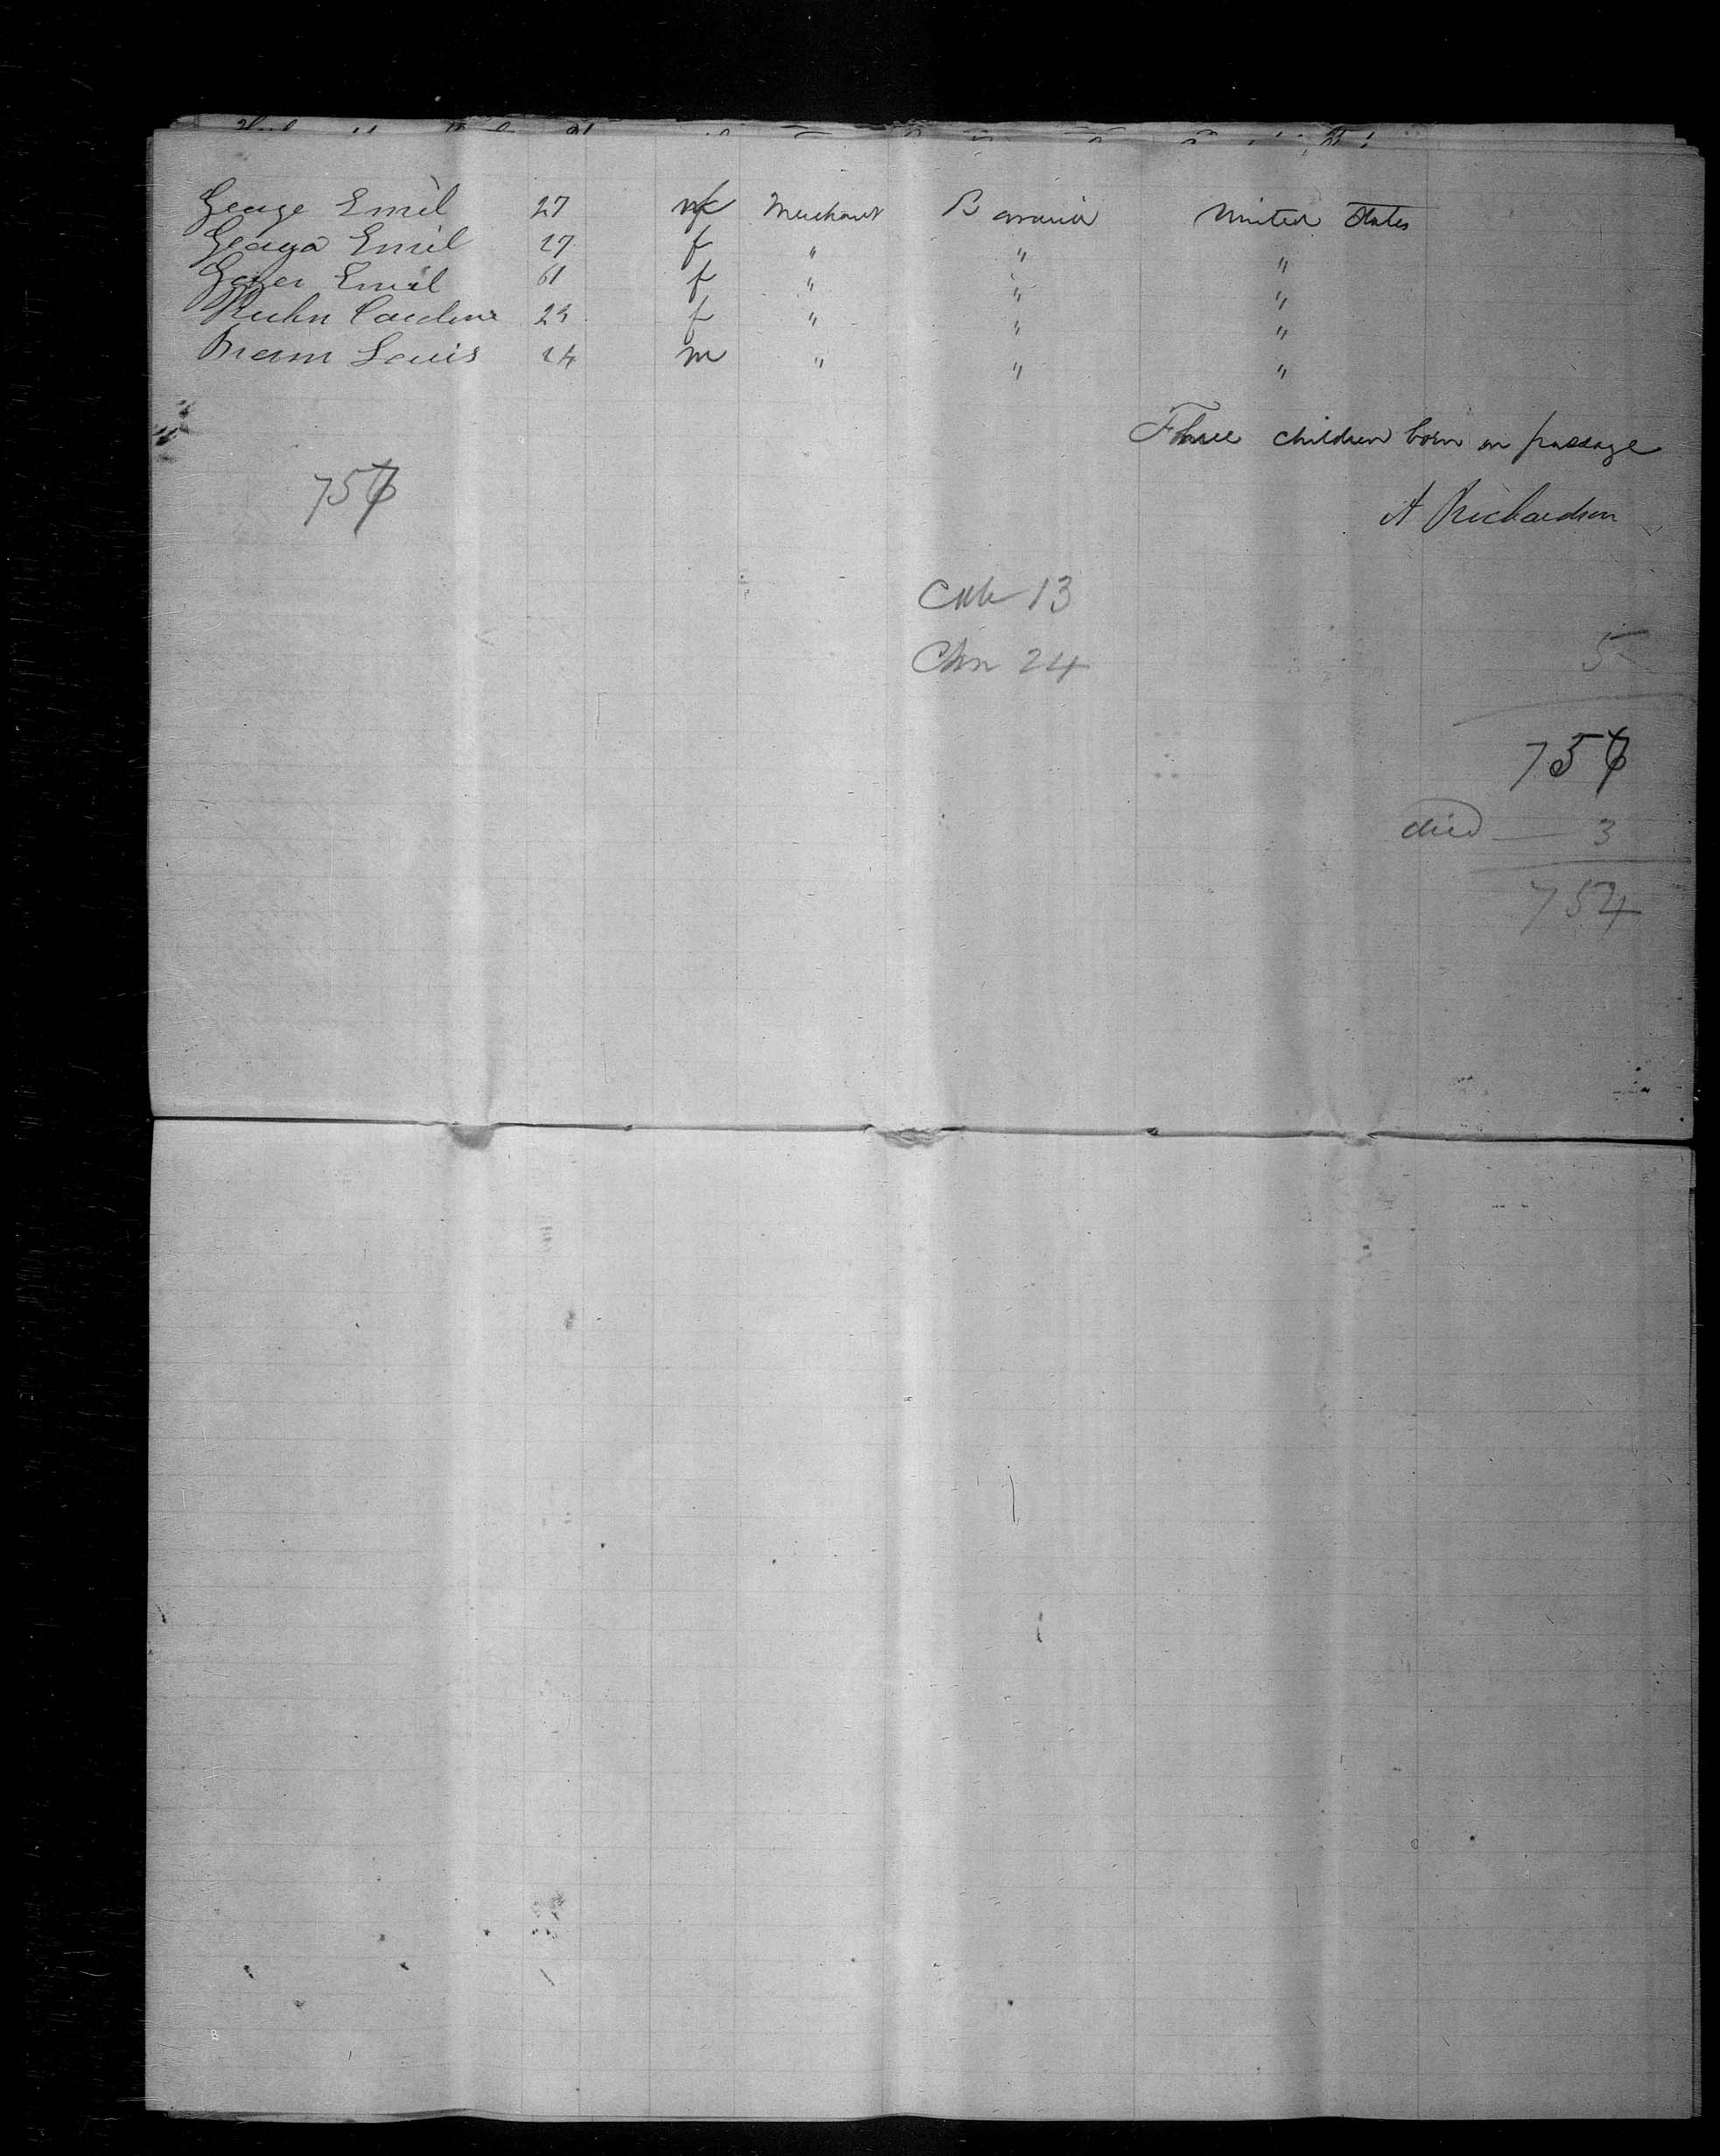 George Emil 27 m Merchant Bavaria United States
Emil 27 f " " "
Emil 61 f " " "
Kuhn Caroline 23 f " " "
Louis 24 m " " "
Three children born on passage
A Richardson
757
Cab 13
Chn 24
5
757
died — 3
754